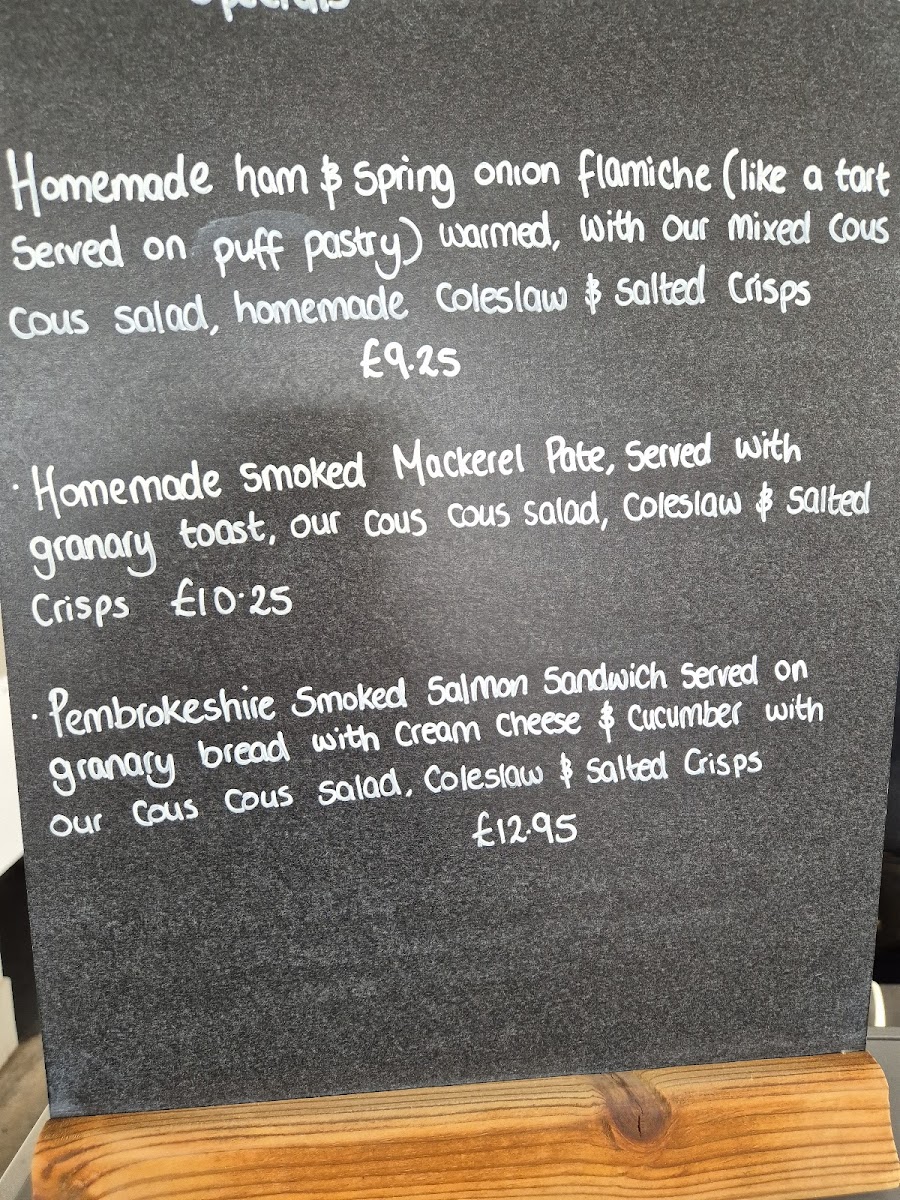 Specials
Homemade ham & Spring onion flamiche (like a tart
Served on puff pastry) warmed, with our mixed Cous
Cous salad, homemade Coleslaw & Salted Crisps
£9.25
· Homemade Smoked Mackerel Pate, Served with
granary toast, our cous cous salad, Coleslaw & Salted
Crisps £10.25
· Pembrokeshire Smoked Salmon Sandwich Served on
granary bread with Cream Cheese & Cucumber with
our Cous Cous Salad, Coleslaw & Salted Crisps
£12.95